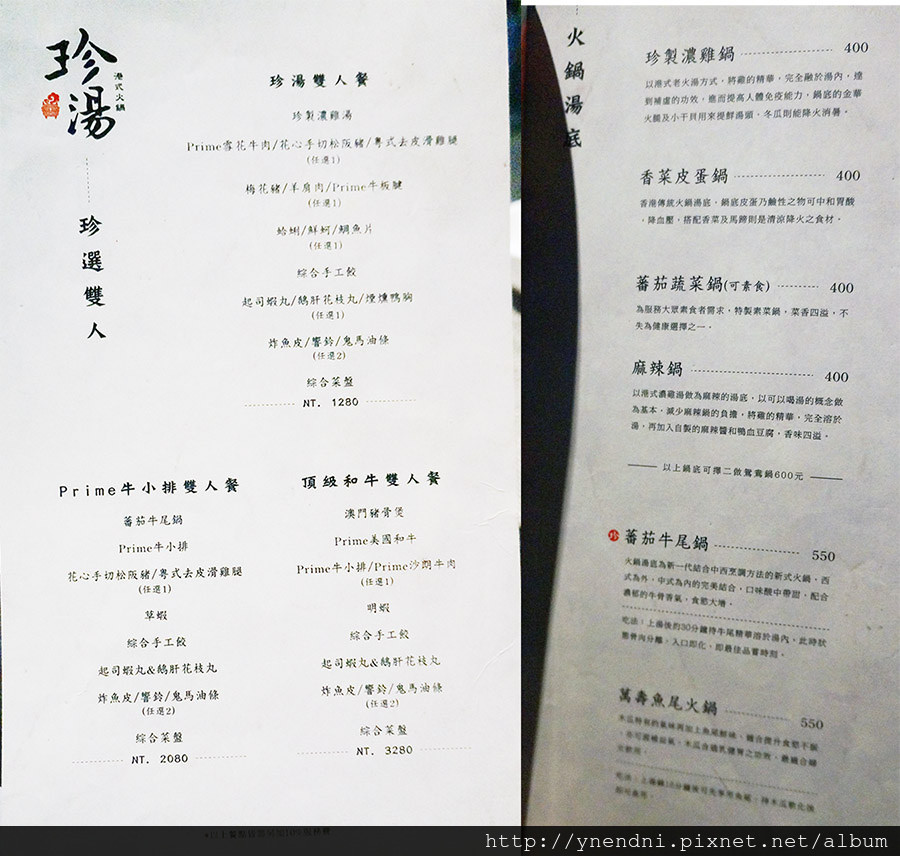 珍湯
港式火鍋
珍選雙人
珍湯雙人餐
珍製濃雞湯
Prime雪花牛肉/花心手切松阪豬/粵式去皮滑雞腿
(任選1)
梅花豬/羊肩肉/Prime牛板腱
(任選1)
蛤蜊/鮮蚵/鯛魚片
(任選1)
綜合手工餃
起司蝦丸/鵝肝花枝丸/煙燻鴨胸
(任選1)
炸魚皮/響鈴/鬼馬油條
(任選2)
綜合菜盤
NT. 1280
Prime牛小排雙人餐
蕃茄牛尾鍋
Prime牛小排
花心手切松阪豬/粵式去皮滑雞腿
(任選1)
草蝦
綜合手工餃
起司蝦丸&鵝肝花枝丸
炸魚皮/響鈴/鬼馬油條
(任選2)
綜合菜盤
NT. 2080
頂級和牛雙人餐
澳門豬骨煲
Prime美國和牛
Prime牛小排/Prime沙朗牛肉
(任選1)
明蝦
綜合手工餃
起司蝦丸&鵝肝花枝丸
炸魚皮/響鈴/鬼馬油條
(任選2)
綜合菜盤
NT. 3280
火鍋湯底
珍製濃雞鍋 400
以港式老火湯方式，將雞的精華，完全融於湯內，達
到補虛的功效，進而提高人體免疫能力，鍋底的金華
火腿及小干貝用來提鮮湯頭、冬瓜則能降火消暑。
香菜皮蛋鍋 400
香港傳統火鍋湯底，鍋底皮蛋乃鹼性之物可中和胃酸
，降血壓，搭配香菜及馬蹄則是清涼降火之食材。
蕃茄蔬菜鍋(可素食) 400
為服務大眾素食者需求，特製素菜鍋，菜香四溢，不
失為健康選擇之一。
麻辣鍋 400
以港式濃雞湯做為麻辣的湯底，以可以喝湯的概念做
為基本，減少麻辣鍋的負擔，將雞的精華，完全溶於
湯，再加入自製的麻辣醬和鴨血豆腐，香味四溢。
以上鍋底可擇二做鴛鴦鍋600元
珍 蕃茄牛尾鍋 550
火鍋湯底為新一代結合中西烹調方法的新式火鍋，西
式為外，中式為內的完美結合，口味酸中帶甜，配合
濃郁的牛骨香氣，食慾大增。
吃法：上湯後約30分鐘待牛尾精華溶於湯內，此時狀
態骨肉分離，入口即化，即最佳品嘗時刻。
萬壽魚尾火鍋 550
http://ynendni.pixnet.net/album